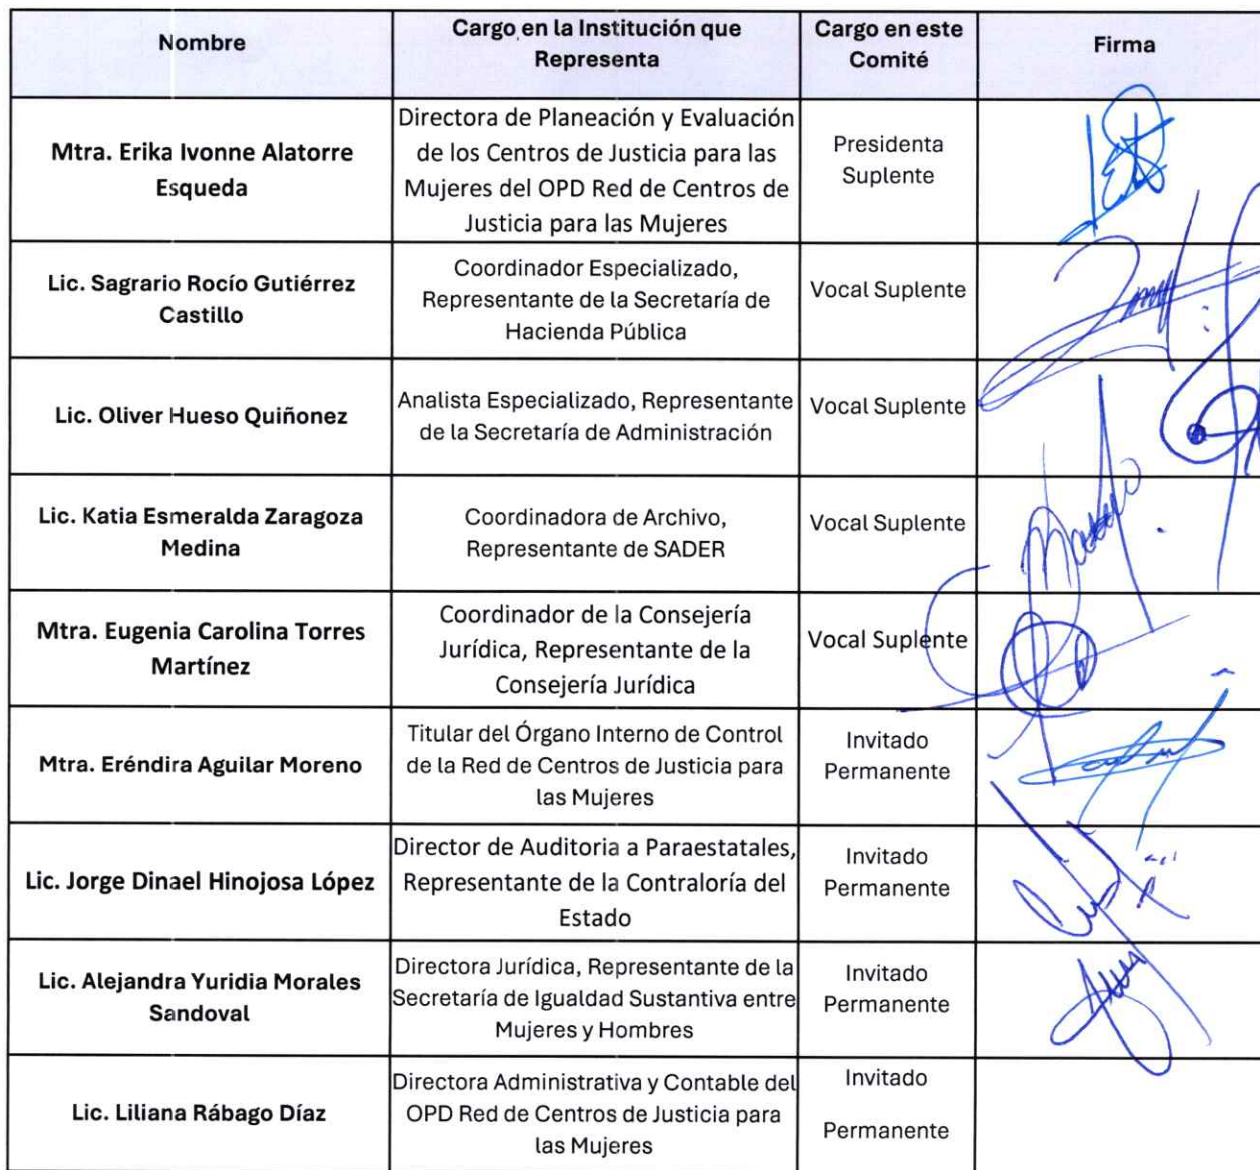 Nombre
Cargo en la Institución que
Representa
Cargo en este
Comité
Firma
Mtra. Erika Ivonne Alatorre
Esqueda
Directora de Planeación y Evaluación
de los Centros de Justicia para las
Mujeres del OPD Red de Centros de
Justicia para las Mujeres
Presidenta
Suplente
Lic. Sagrario Rocío Gutiérrez
Castillo
Coordinador Especializado,
Representante de la Secretaría de
Hacienda Pública
Vocal Suplente
Lic. Oliver Hueso Quiñonez
Analista Especializado, Representante
de la Secretaría de Administración
Vocal Suplente
Lic. Katia Esmeralda Zaragoza
Medina
Coordinadora de Archivo,
Representante de SADER
Vocal Suplente
Mtra. Eugenia Carolina Torres
Martínez
Coordinador de la Consejería
Jurídica, Representante de la
Consejería Jurídica
Vocal Suplente
Mtra. Eréndira Aguilar Moreno
Titular del Órgano Interno de Control
de la Red de Centros de Justicia para
las Mujeres
Invitado
Permanente
Lic. Jorge Dinael Hinojosa López
Director de Auditoria a Paraestatales,
Representante de la Contraloría del
Estado
Invitado
Permanente
Lic. Alejandra Yuridia Morales
Sandoval
Directora Jurídica, Representante de la
Secretaría de Igualdad Sustantiva entre
Mujeres y Hombres
Invitado
Permanente
Lic. Liliana Rábago Díaz
Directora Administrativa y Contable del
OPD Red de Centros de Justicia para
las Mujeres
Invitado
Permanente